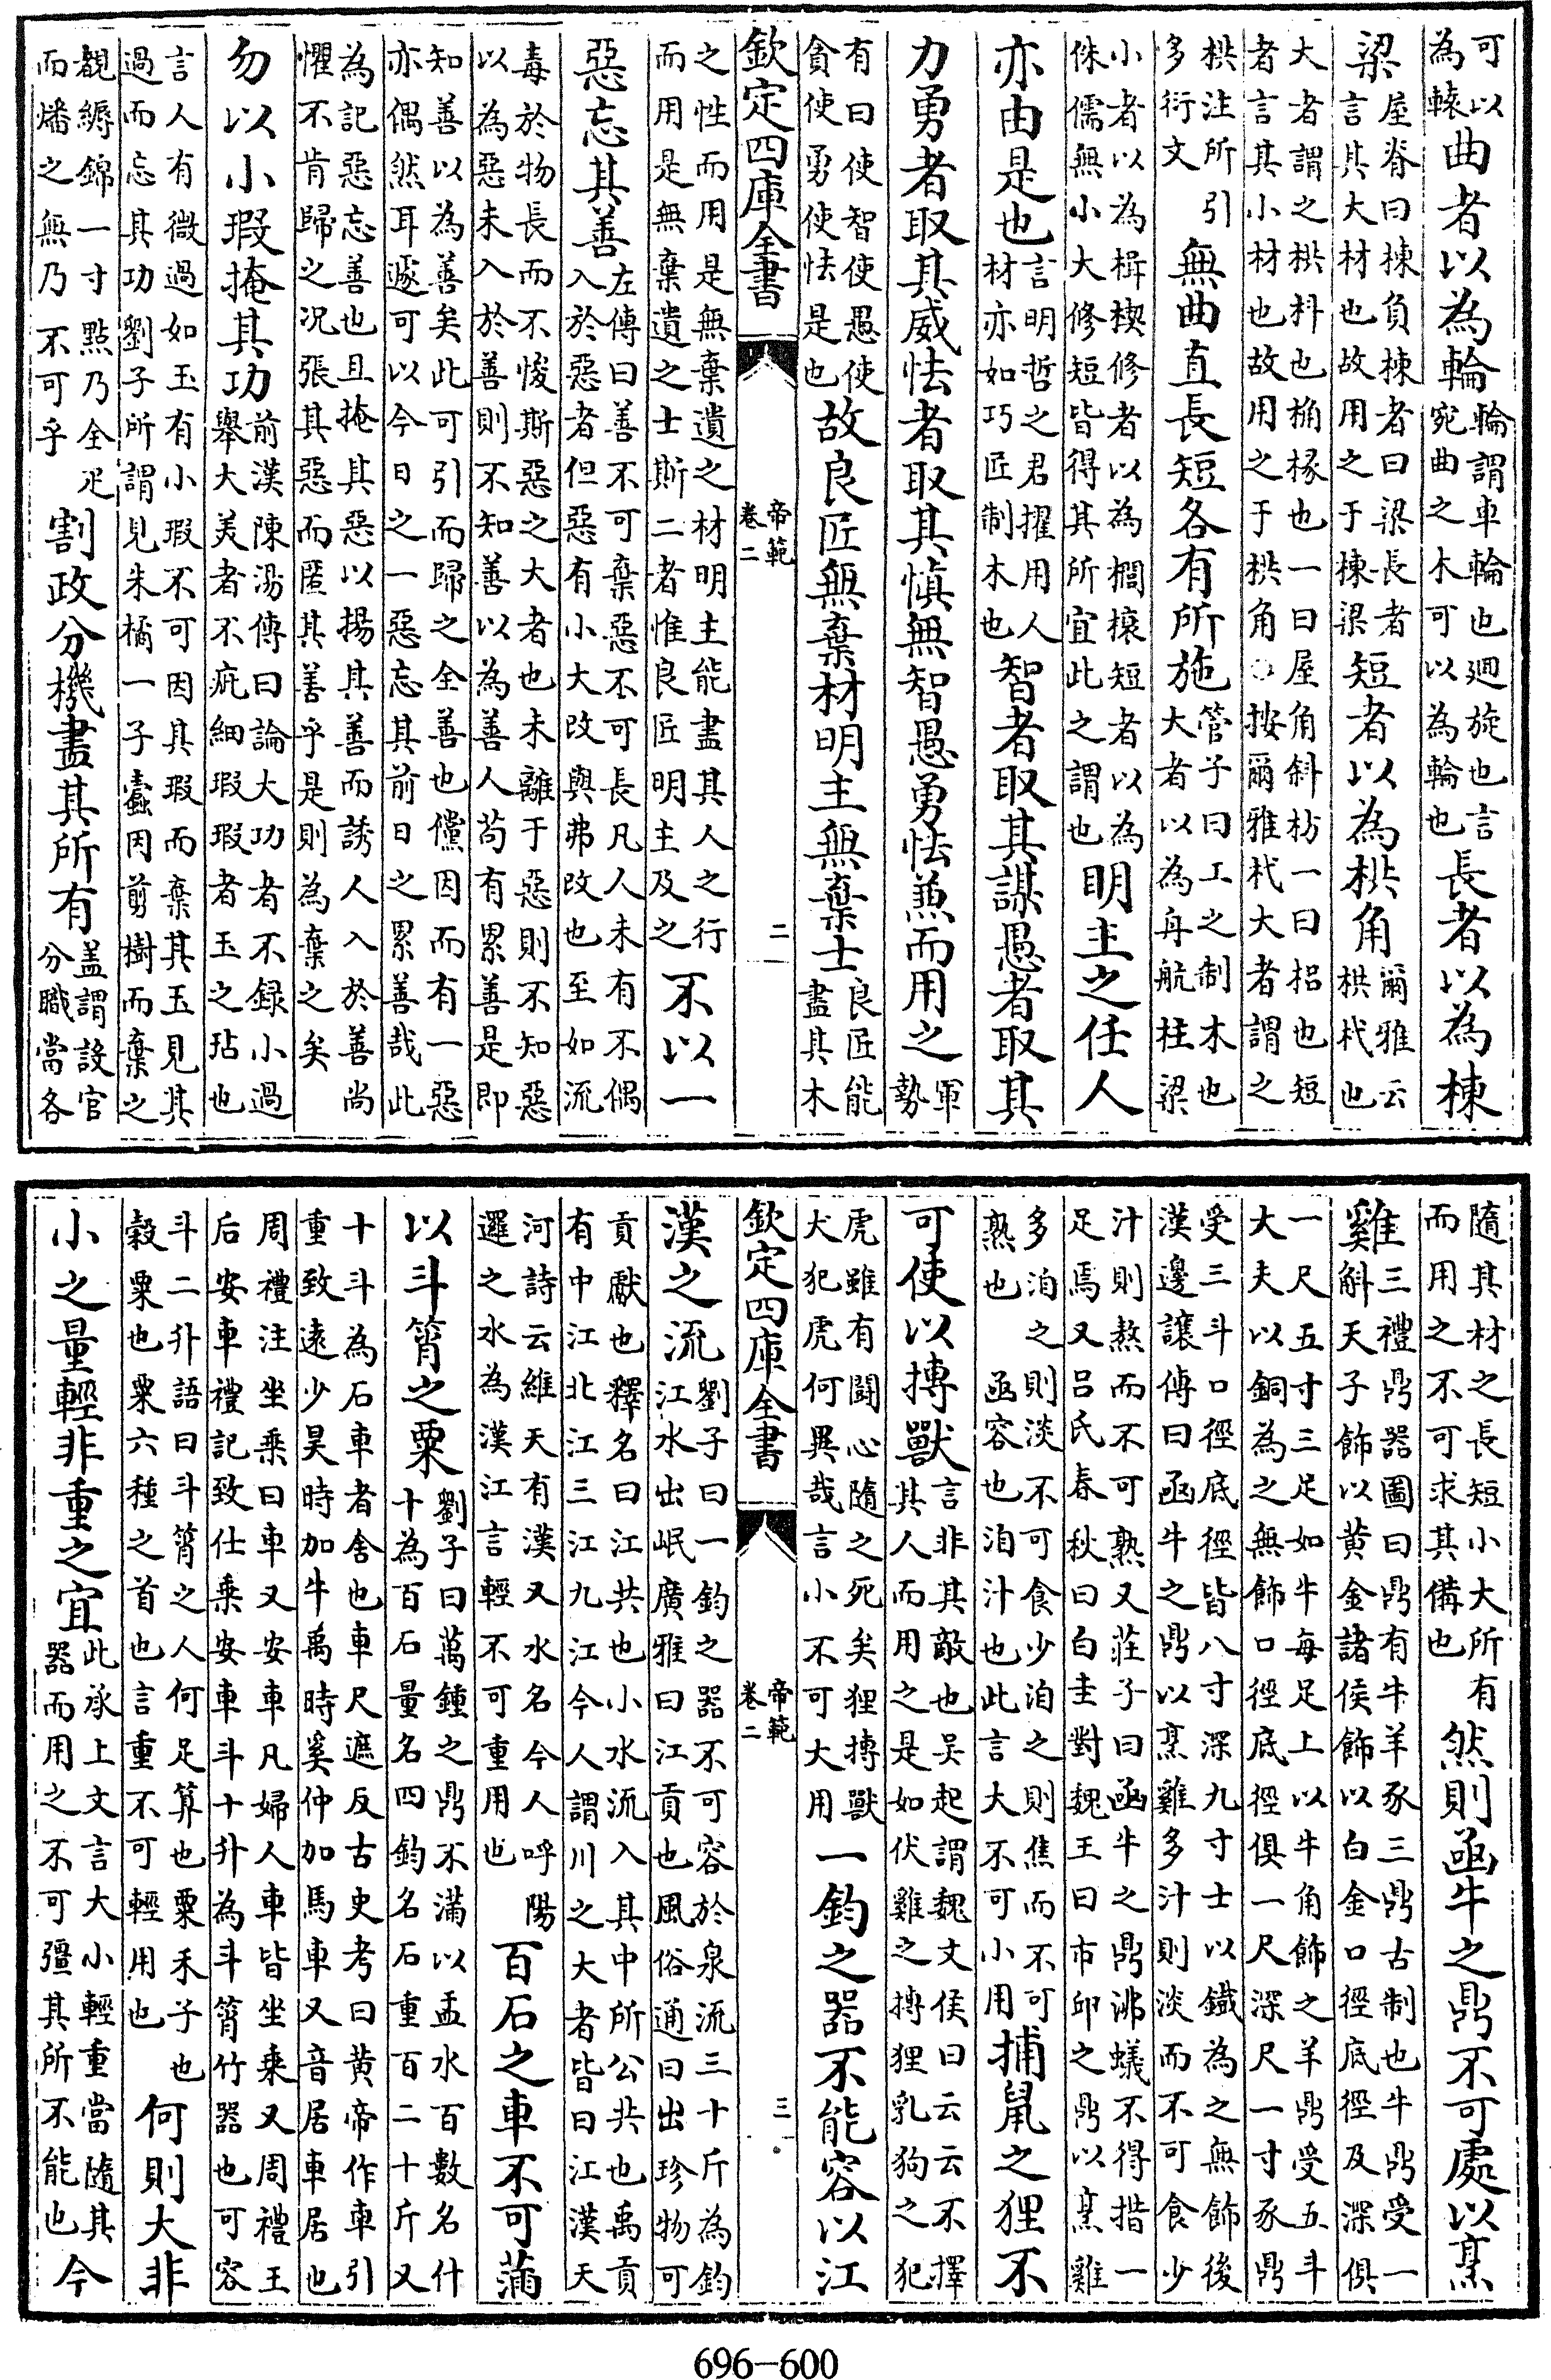 可以
為轅
曲者以為輪
輪謂車輪也迴旋也言
宛曲之木可以為輪也
長者以為棟
梁
屋脊曰棟負棟者曰梁長者
言其大材也故用之于棟梁
短者以為栱角
爾雅云
栱杙也
大者謂之栱枓也桷椽也一曰屋角斜枋一曰梠也短
者言其小材也故用之于栱角○按爾雅杙大者謂之
栱注所引
多衍文
無曲直長短各有所施
管子曰工之制木也
大者以為舟航柱梁
小者以為楫楔修者以為櫩榱短者以為
侏儒無小大修短皆得其所宜此之謂也
明主之任人
亦由是也
言明哲之君擢用人
材亦如巧匠制木也
智者取其謀愚者取其
力勇者取其威怯者取其慎無智愚勇怯兼而用之
軍
勢
有曰使智使愚使
貪使勇使怯是也
故良匠無棄材明主無棄士
良匠能
盡其木
欽定四庫全書
帝範
卷二
二
之性而用是無棄遺之材明主能盡其人之行
而用是無棄遺之士斯二者惟良匠明主及之
不以一
惡忘其善
左傳曰善不可棄惡不可長凡人未有不偶
入於惡者但惡有小大改與弗改也至如流
毒於物長而不悛斯惡之大者也未離于惡則不知惡
以為惡未入於善則不知善以為善人苟有累善是即
知善以為善矣此可引而歸之全善也儻因而有一惡
亦偶然耳遽可以今日之一惡忘其前日之累善哉此
為記惡忘善也且掩其惡以揚其善而誘人入於善尚
懼不肯歸之况張其惡而匿其善乎是則為棄之矣
勿以小瑕掩其功
前漢陳湯傳曰論大功者不録小過
舉大美者不疵細瑕瑕者玉之玷也
言人有微過如玉有小瑕不可因其瑕而棄其玉見其
過而忘其功劉子所謂見朱橘一子蠹因剪樹而棄之
覩縟錦一寸點乃全疋
而燔之無乃不可乎
割政分機盡其所有
盖謂設官
分職當各
隨其材之長短小大所有
而用之不可求其備也
然則函牛之鼎不可處以烹
雞
三禮鼎器圖曰鼎有牛羊豕三鼎古制也牛鼎受一
斛天子飾以黄金諸侯飾以白金口徑底徑及深俱
一尺五寸三足如牛每足上以牛角飾之羊鼎受五斗
大夫以銅為之無飾口徑底徑俱一尺深尺一寸豕鼎
受三斗口徑底徑皆八寸深九寸士以鐵為之無飾後
漢邊讓傳曰函牛之鼎以烹雞多汁則淡而不可食少
汁則熬而不可熟又莊子曰函牛之鼎沸蟻不得措一
足焉又吕氏春秋曰白圭對魏王曰市邱之鼎以烹雞
多洎之則淡不可食少洎之則焦而不可
熟也　函容也洎汁也此言大不可小用
捕鼠之狸不
可使以搏獸
言非其敵也吴起謂魏文侯曰云云不擇
其人而用之是如伏雞之搏狸乳狗之犯
虎雖有鬪心隨之死矣狸搏獸
犬犯虎何異哉言小不可大用
一鈞之器不能容以江
欽定四庫全書
帝範
卷二
三
漢之流
劉子曰一鈞之器不可容於泉流三十斤為鈞
江水出岷廣雅曰江貢也風俗通曰出珍物可
貢獻也釋名曰江共也小水流入其中所公共也禹貢
有中江北江三江九江今人謂川之大者皆曰江漢天
河詩云維天有漢又水名今人呼陽
邏之水為漢江言輕不可重用也
百石之車不可滿
以斗筲之粟
劉子曰萬鍾之鼎不滿以盂水百數名什
十為百石量名四鈞名石重百二十斤又
十斗為石車者舍也車尺遮反古史考曰黄帝作車引
重致遠少昊時加牛禹時奚仲加馬車又音居車居也
周禮注坐乘曰車又安車凡婦人車皆坐乘又周禮王
后安車禮記致仕乘安車斗十升為斗筲竹器也可容
斗二升語曰斗筲之人何足算也粟禾子也
穀粟也粟六種之首也言重不可輕用也
何則大非
小之量輕非重之宜
此承上文言大小輕重當隨其
器而用之不可彊其所不能也
今
696-600